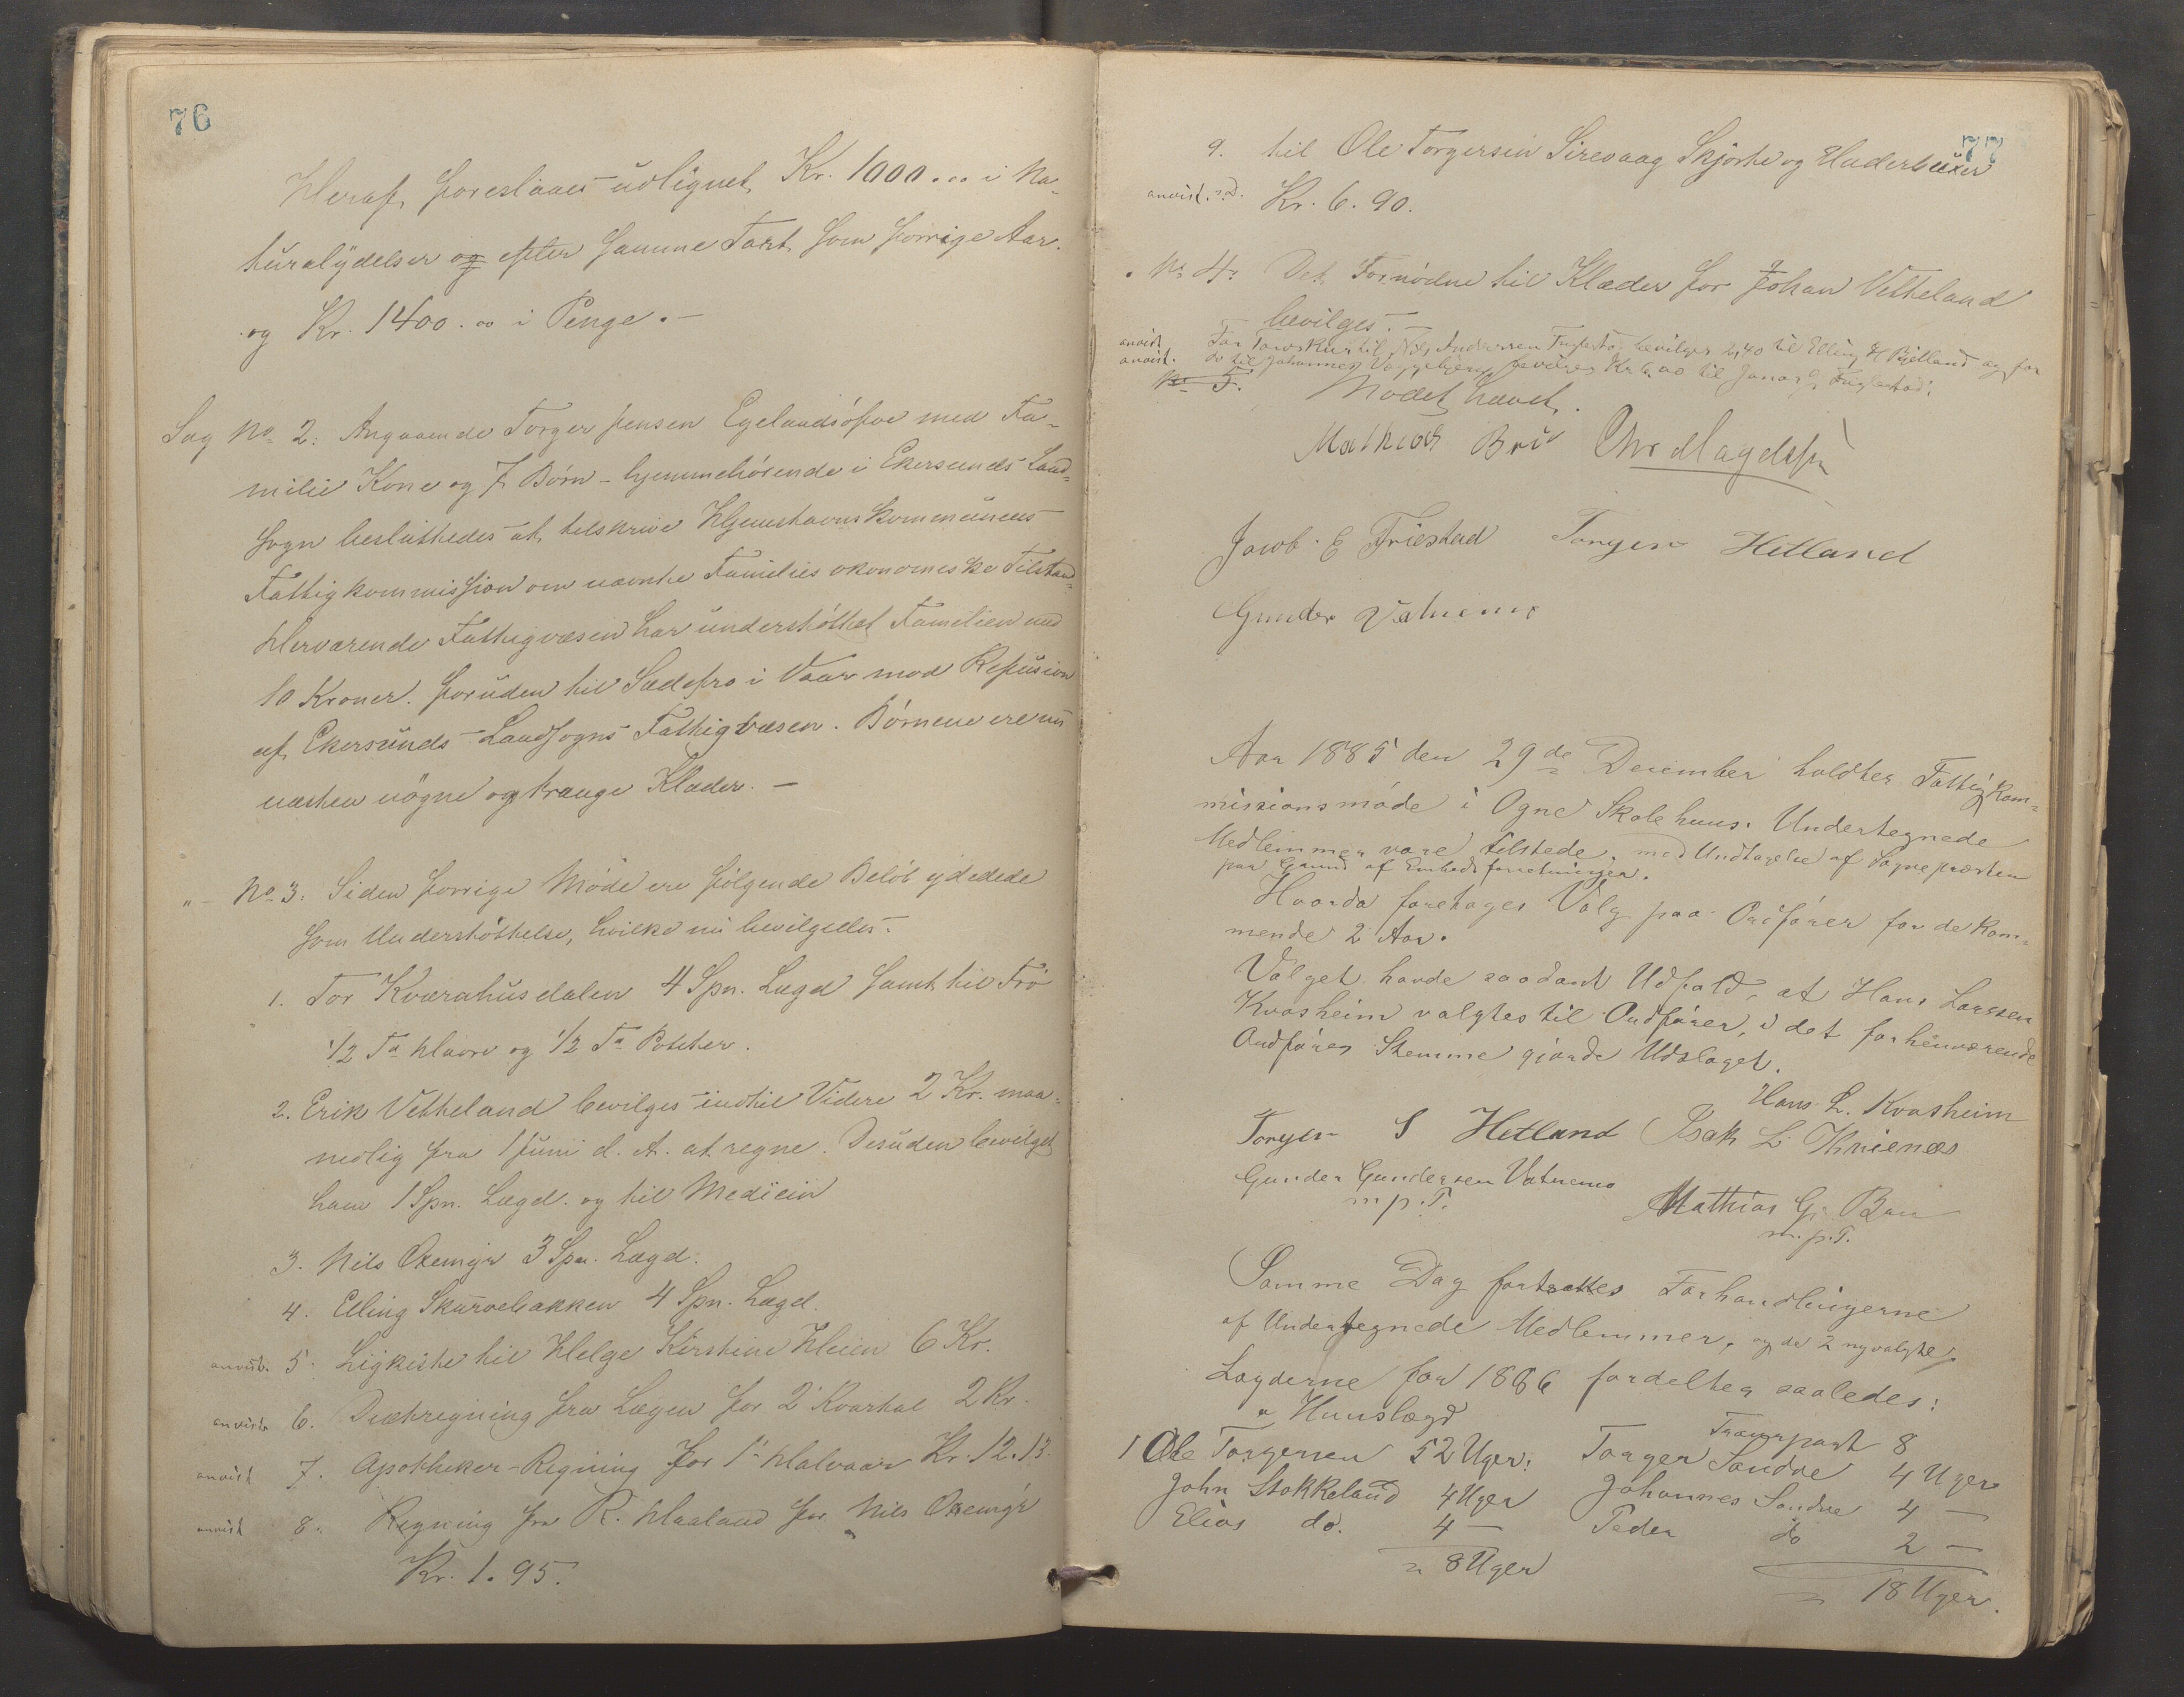 76
Heraf foreslaaes udlignet Kr. 1000.00 i Na-
turalydelser og efter samme Taxt som forrige Aar.
og Kr. 1400.00 i Penge. —
Sag No 2: Angaaende Torger Jensen Egelandsófve med Fa-
milie Kone og 7 Børn - hjemmehörende i Ekersunds Land-
sogn besluttedes at tilskrive Hjemstavnskommunens
Fattigkommission om nævnte Families økonomiske Tilstand-
Herværende Fattigvæsen har understöttet Familien med
10 Kroner foruden til Sædefro i Vaar mod Refusion
af Ekersunds Landsogns Fattigvæsen. Börnene ere nu
næsten nögne og trænge Klæder. —
"– No 3. Siden forrige Möde ere fölgende Belöb ydedede
som Understöttelse, hvilke nu bevilgedes.
1. Tor Kværahusdalen 4 Spn. Lægd samt til Frö
1/2 Tø Havre og 1/2 Tø Poteter.
2. Erik Vetteland bevilges indtil Videre 2 Kr. maa-
nedlig fra 1 Juni d. A. at regne. Desuden bevilget
ham 1 Spn. Lægd. og til Medicin
3. Nils Oxemyr 3 Spn. Lægd.
4. Elling Skurvebakken 4 Spn. Lægd.
anvist. 5. Ligkiste til Helge Kirstine Heien 6 Kr.
anvist 6. Diætregning fra Lægen for 2' Kvartal 2 Kr.
anvist 7. Apotheker-Regning for 1' Halvaar Kr. 12.13
anvist 8. Regning fra R. Haaland for Nils Oxemyr
Kr. 1.95.
77
9. til Ole Torgersen Sirevaag Skjorte og Underbuxer
anvist. Kr. 6.90.
No 4. Det Fornödne til Klæder for Johan Vetteland
bevilges. —
anvist For Forskud til Nils Andersen Fuglestö bevilges 2,40 til Elling H Bjelland og for
anvist. do til Johannes bevilges Kr. 6.00 til Jonas G. Fuglestad.
No 5. Mödet hævet.
Mathias Bru Chr Magdahl
Jacob E Friestad Torger Hetland
Gunder Vatnemo
Aar 1885 den 29de December holdtes Fattigkom-
missionsmöde i Ogne Skolehuus. Undertegnede
Medlemmer vare tilstede, med Undtagelse af Sognepræsten
paa Grund af Embedsforretninger.
Hvorda foretoges Valg paa Ordförer for de kom-
mende 2 Aar.
Valget havde saadant Udfald, at Hans Larssen
Kvasheim valgtes til Ordförer, i det forhenværende
Ordförers Stemme gjorde Udslaget.
Hans L. Kvasheim
Torger S Hetland Isak L. Thrienæs
Gunder Gundersen Vatnemo Mathias G. Bru
m. p. P. m. p. P.
Samme Dag fortsattes Forhandlingerne
af Undertegnede Medlemmer, og de 2 nyvalgte
Lægderne for 1886 fordeltes saaledes:
a, Huuslægd Transport 8
1 Ole Torgersen 52 Uger. Torger Sandve 4 Uger
John Stokkeland 4 Uger Johannes Sandve 4 —
Elias do. 4 — Peder do 2 —
= 8 Uger = 18 Uger.